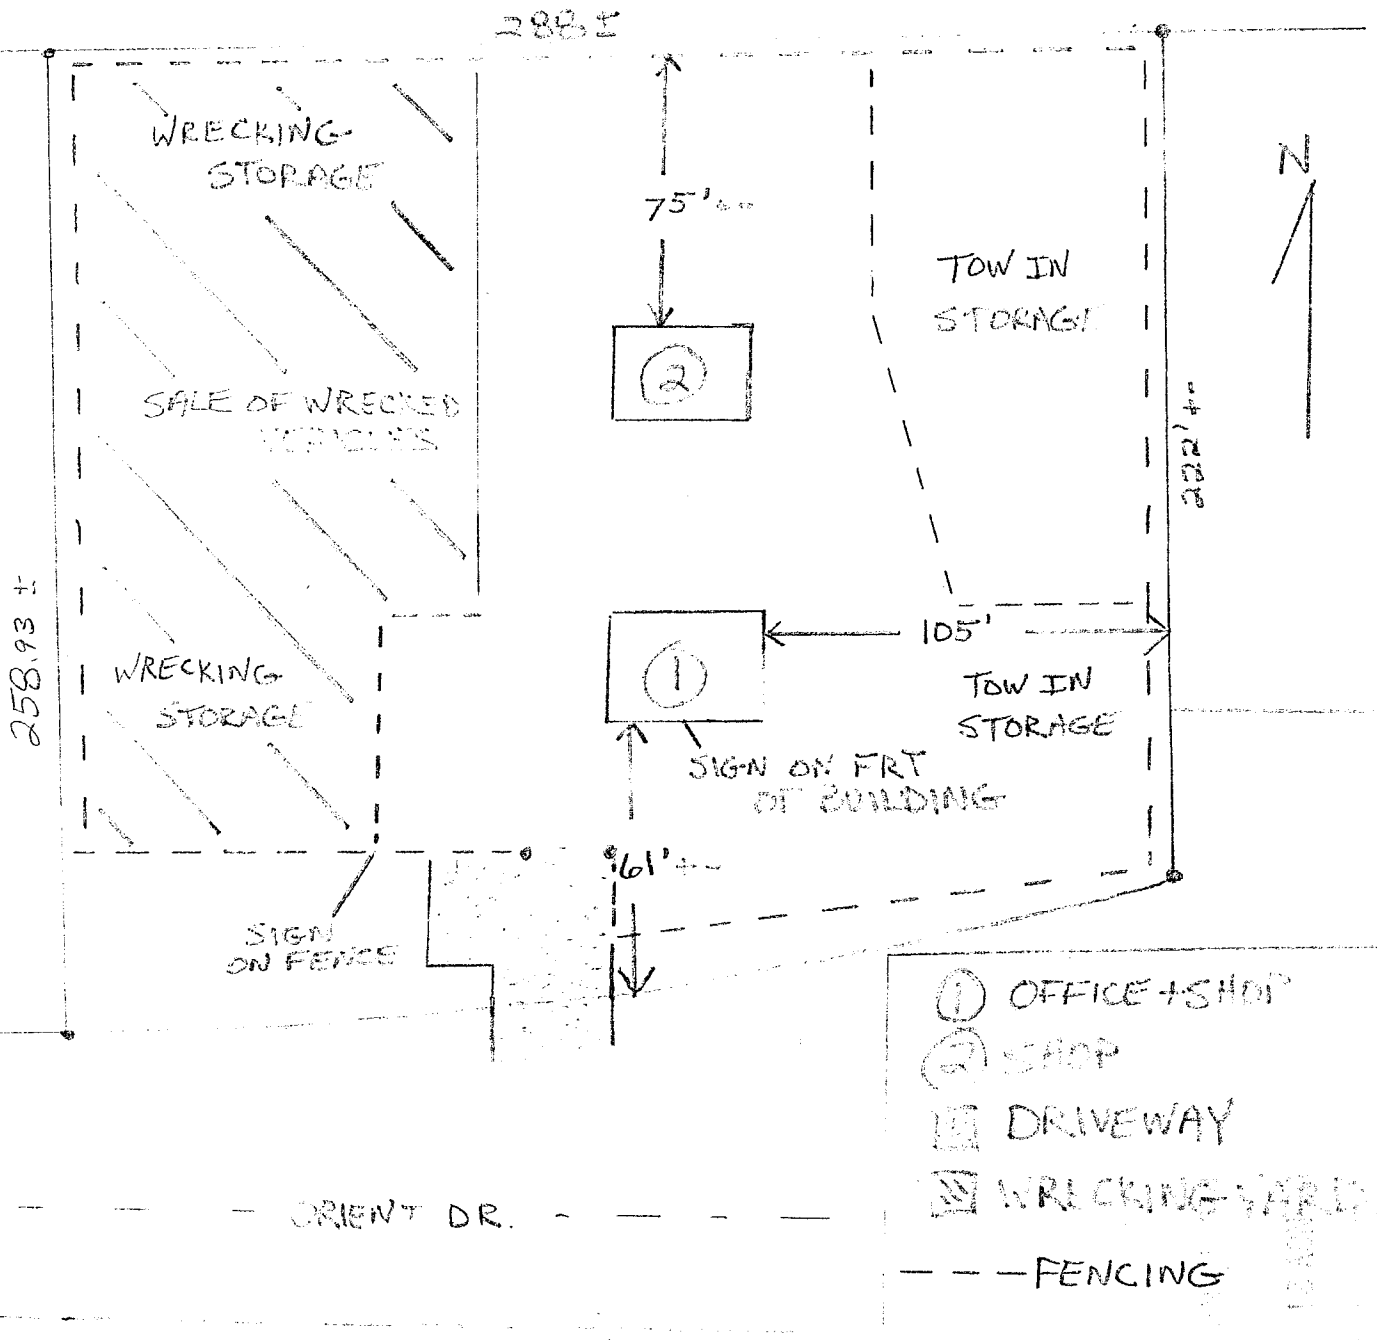 288 ±
WRECKING
STORAGE
75' +-
N
TOW IN
STORAGE
2
SALE OF WRECKED
VEHICLES
222' +-
258.93 ±
105'
1
WRECKING
STORAGE
TOW IN
STORAGE
SIGN ON FRT
OF BUILDING
61' +-
SIGN
ON FENCE
1 OFFICE + SHOP
2 SHOP
DRIVEWAY
WRECKING YARD
ORIENT DR.
FENCING